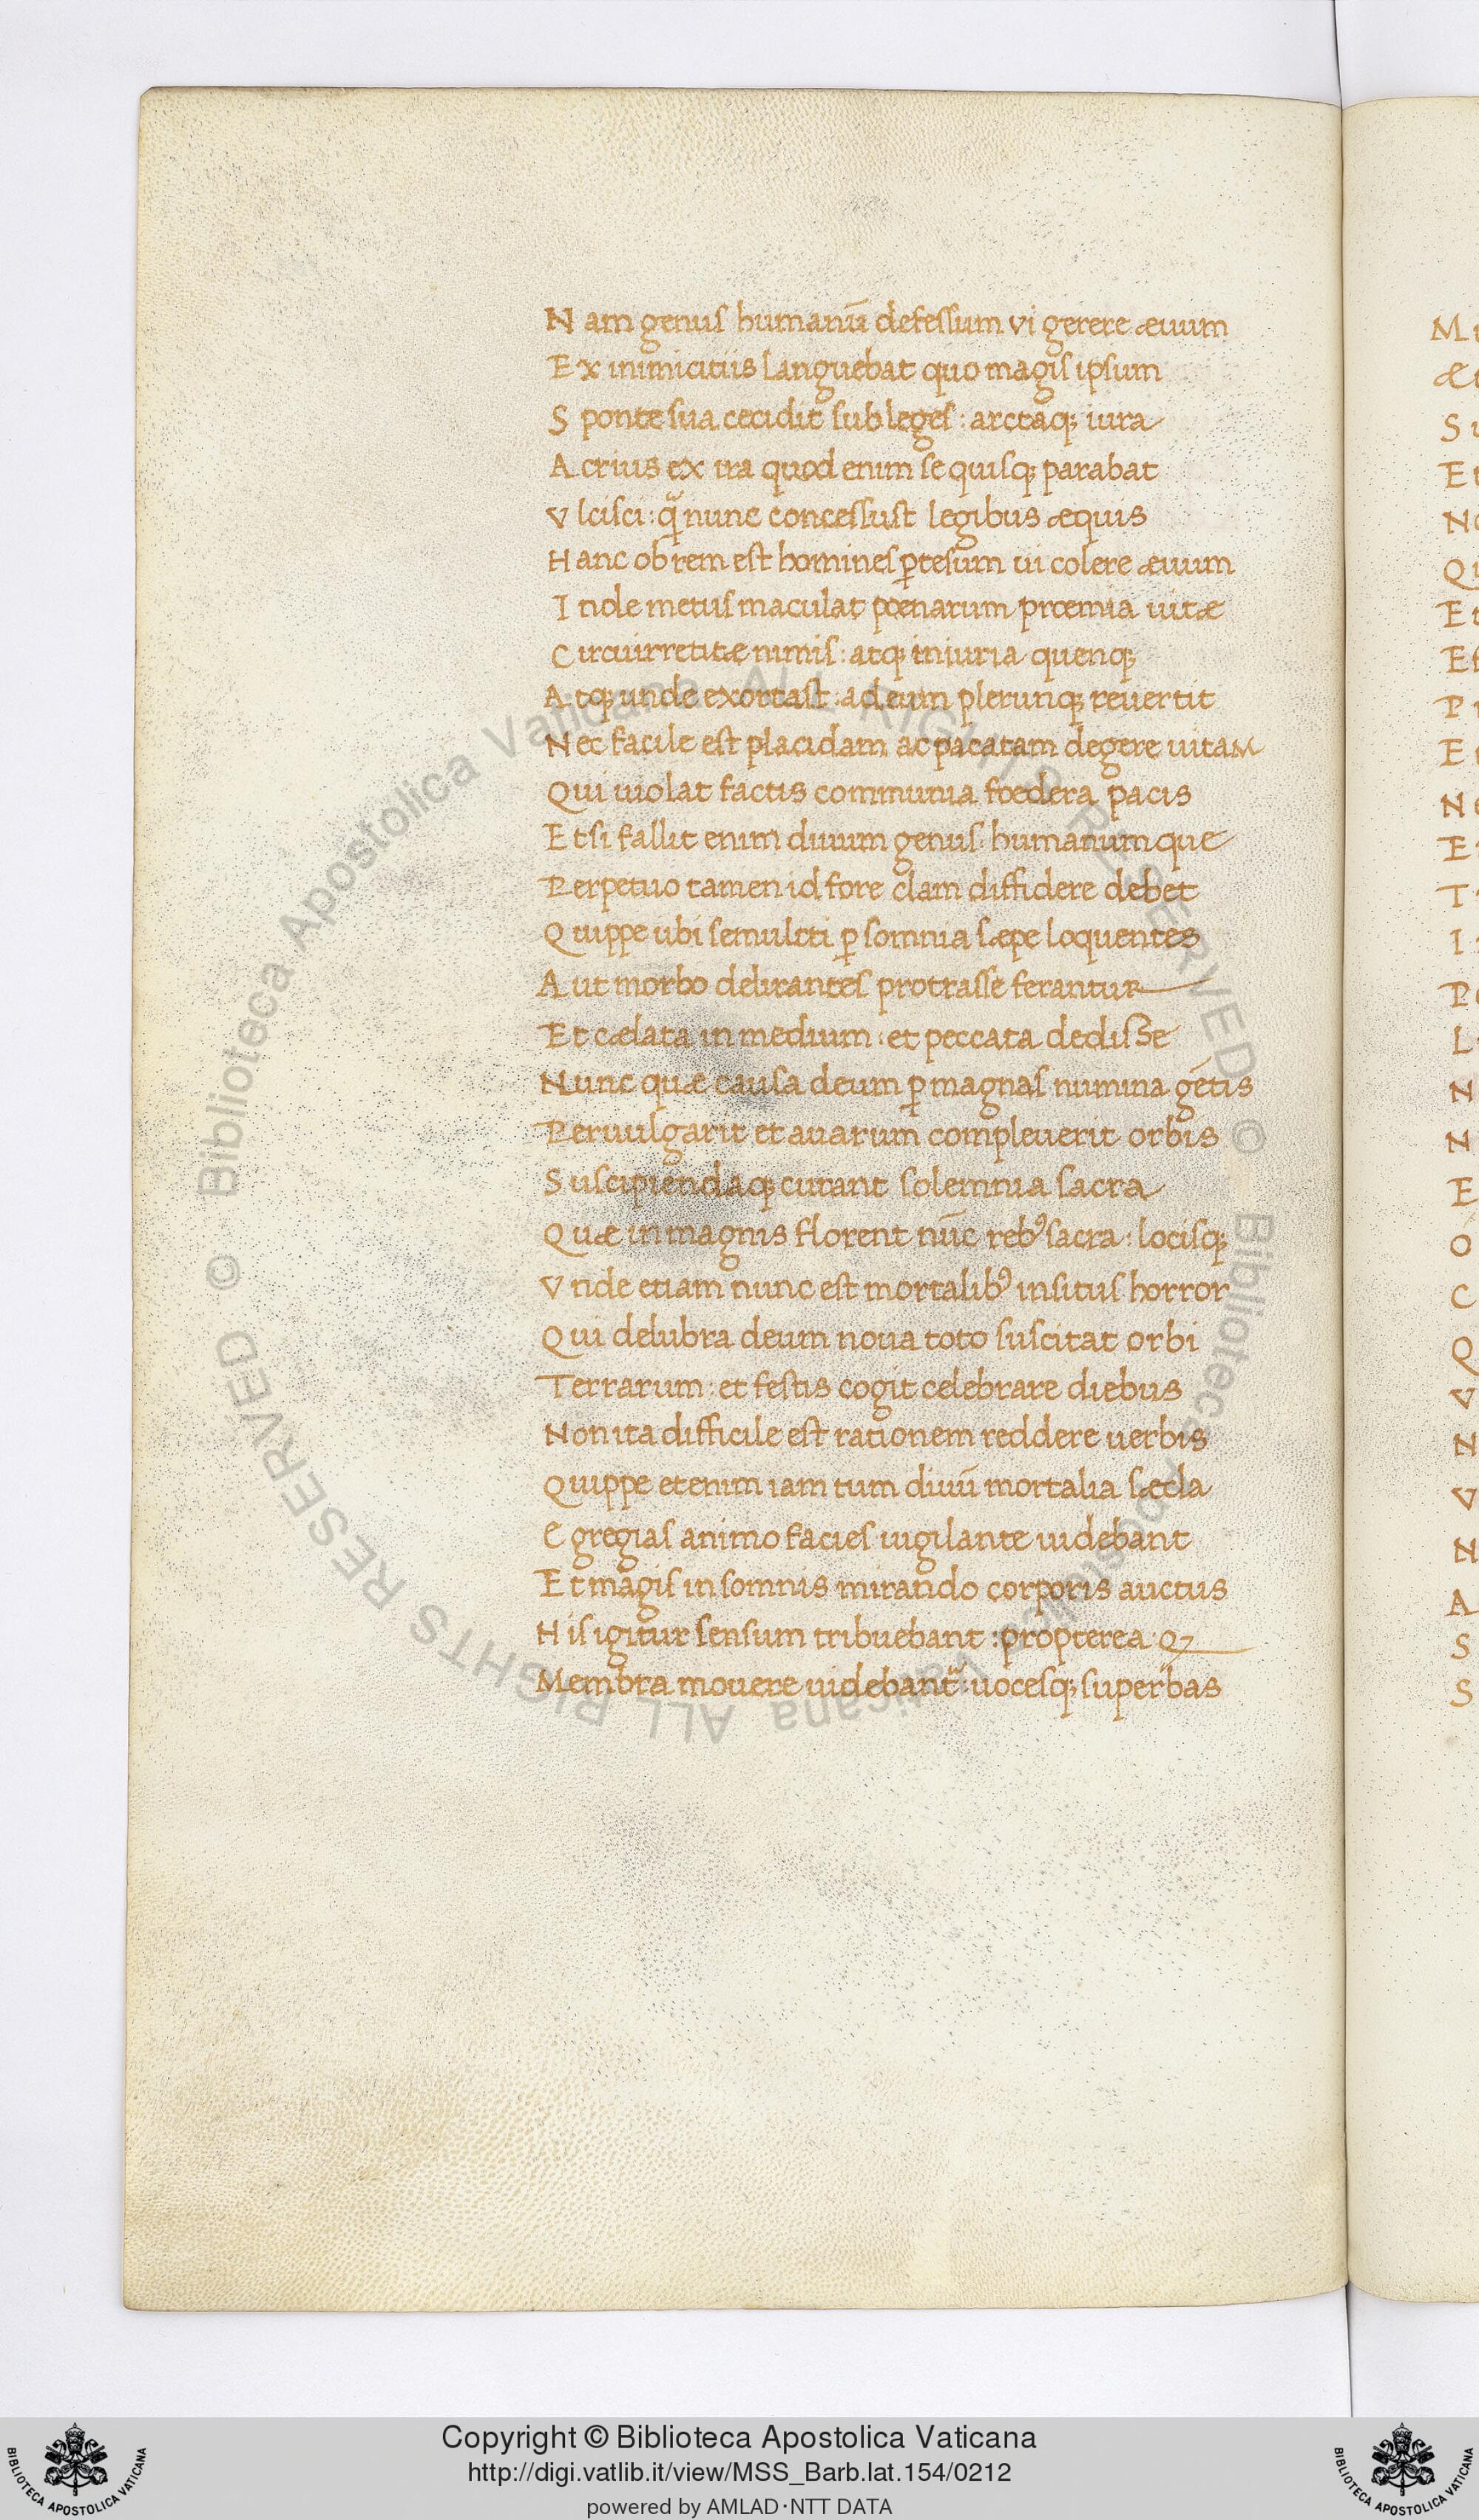 Nam genus humanū defessum vi gerere æuum
Ex inimicitiis languebat quo magis ipsum
Sponte sua cecidit sub leges : arctaq; iura
Acrius ex ira quod enim se quisq; parabat
Vlcisci : q̃ nunc concessust legibus æquis
Hanc ob rem est homines ꝑtesum ui colere æuum
Inde metus maculat poenarum prœmia uitæ
Circuirretitæ nimis : atq; iniuria quenq;
Atq; unde exortast : ad eum plerunq; reuertit
Nec facile est placidam ac pacatam degere uitam
Qui uiolat factis communia foedera pacis
Etsi fallit enim diuum genus humanumque
Perpetuo tamen id fore clam diffidere debet
Quippe ubi se multti ꝑ somnia sæpe loquentes
Aut morbo delirantes protrasse ferantur
Et cælata in medium : et peccata dedisse
Nunc quæ causa deum ꝑ magnas numina gētis
Peruulgarit et auarum compleuerit orbis
Suscipiendaq; curant solemnia sacra
Quæ in magnis florent nūc rebꝰ sacra : locisq;
Vnde etiam nunc est mortalibꝰ insitus horror
Qui delubra deum noua toto suscitat orbi
Terrarum : et festis cogit celebrare diebus
Non ita difficile est rationem reddere uerbis
Quippe etenim iam tum diuū mortalia sæcla
Egregias animo facies uigilante uidebant
Et magis in somnis mirando corporis auctus
His igitur sensum tribuebant : propterea qꝫ
Membra mouere uidebantᷣ : uocesq; superbas
Biblioteca Apostolica Vaticana ALL RIGHTS RESERVED ©
Biblioteca Apostolica Vaticana ALL RIGHTS RESERVED ©
Copyright © Biblioteca Apostolica Vaticana
http://digi.vatlib.it/view/MSS_Barb.lat.154/0212
powered by AMLAD·NTT DATA
BIBLIOTECA APOSTOLICA VATICANA
BIBLIOTECA APOSTOLICA VATICANA